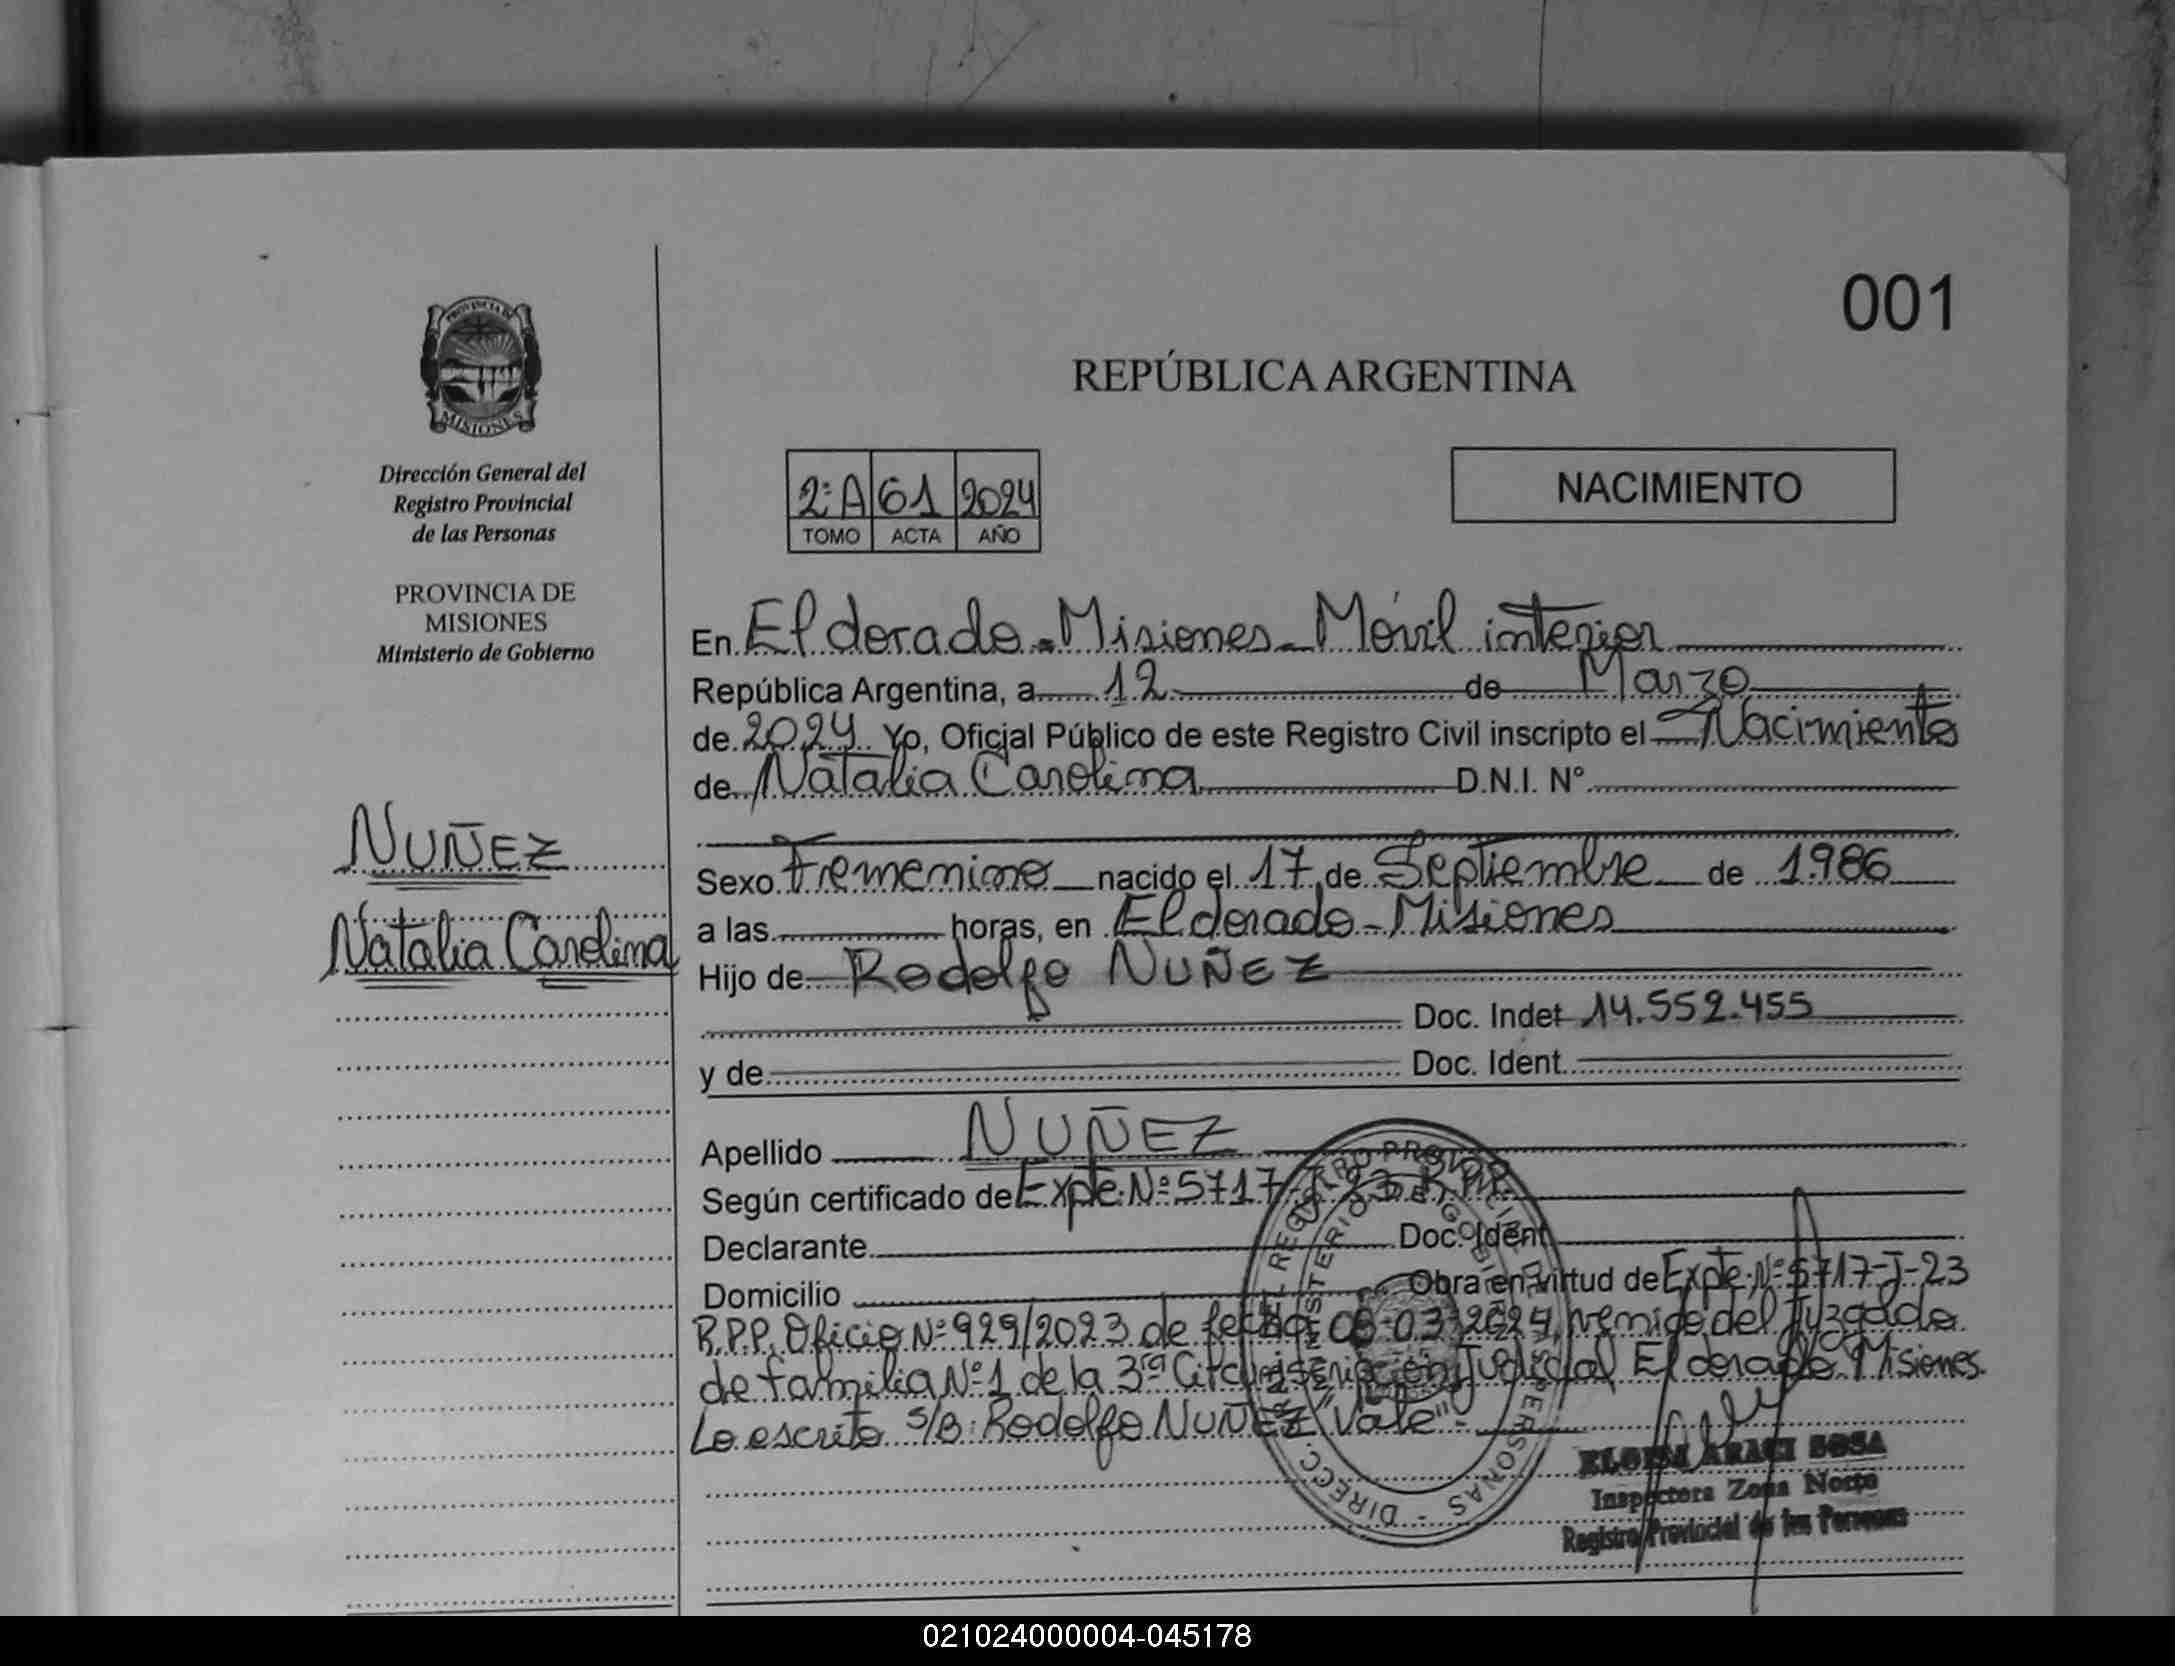 001
PROVINCIA DE
MISIONES
REPÚBLICA ARGENTINA
Dirección General del
Registro Provincial
de las Personas
PROVINCIA DE
MISIONES
Ministerio de Gobierno
2ºA 61 2024
TOMO ACTA AÑO
NACIMIENTO
En Eldorado - Misiones - Móvil interior
República Argentina, a 12 de Marzo
de 2024 Yo, Oficial Público de este Registro Civil inscripto el Nacimiento
de Natalia Carolina D.N.I. Nº
NUÑEZ
Natalia Carolina
Sexo Femenino nacido el 17 de Septiembre de 1986
a las horas, en Eldorado - Misiones
Hijo de Rodolfo NUÑEZ
Doc. Indet 14.552.455
y de Doc. Ident.
Apellido NUÑEZ
Según certificado de Expte. Nº 5717-J-23 R.P.P.
Declarante Doc. Ident
Domicilio Obra en virtud de Expte. Nº 5717-J-23
R.P.P. Oficio Nº 929/2023 de fecha 08-03-2024, venido del Juzgado
de familia Nº 1 de la 3ra Circunscripción Judicial Eldorado Misiones.
Lo escrito S/B: Rodolfo NUÑEZ "Vale"
ELOISA ARACI SOSA
Inspectora Zona Norte
Registro Provincial de las Personas
021024000004-045178